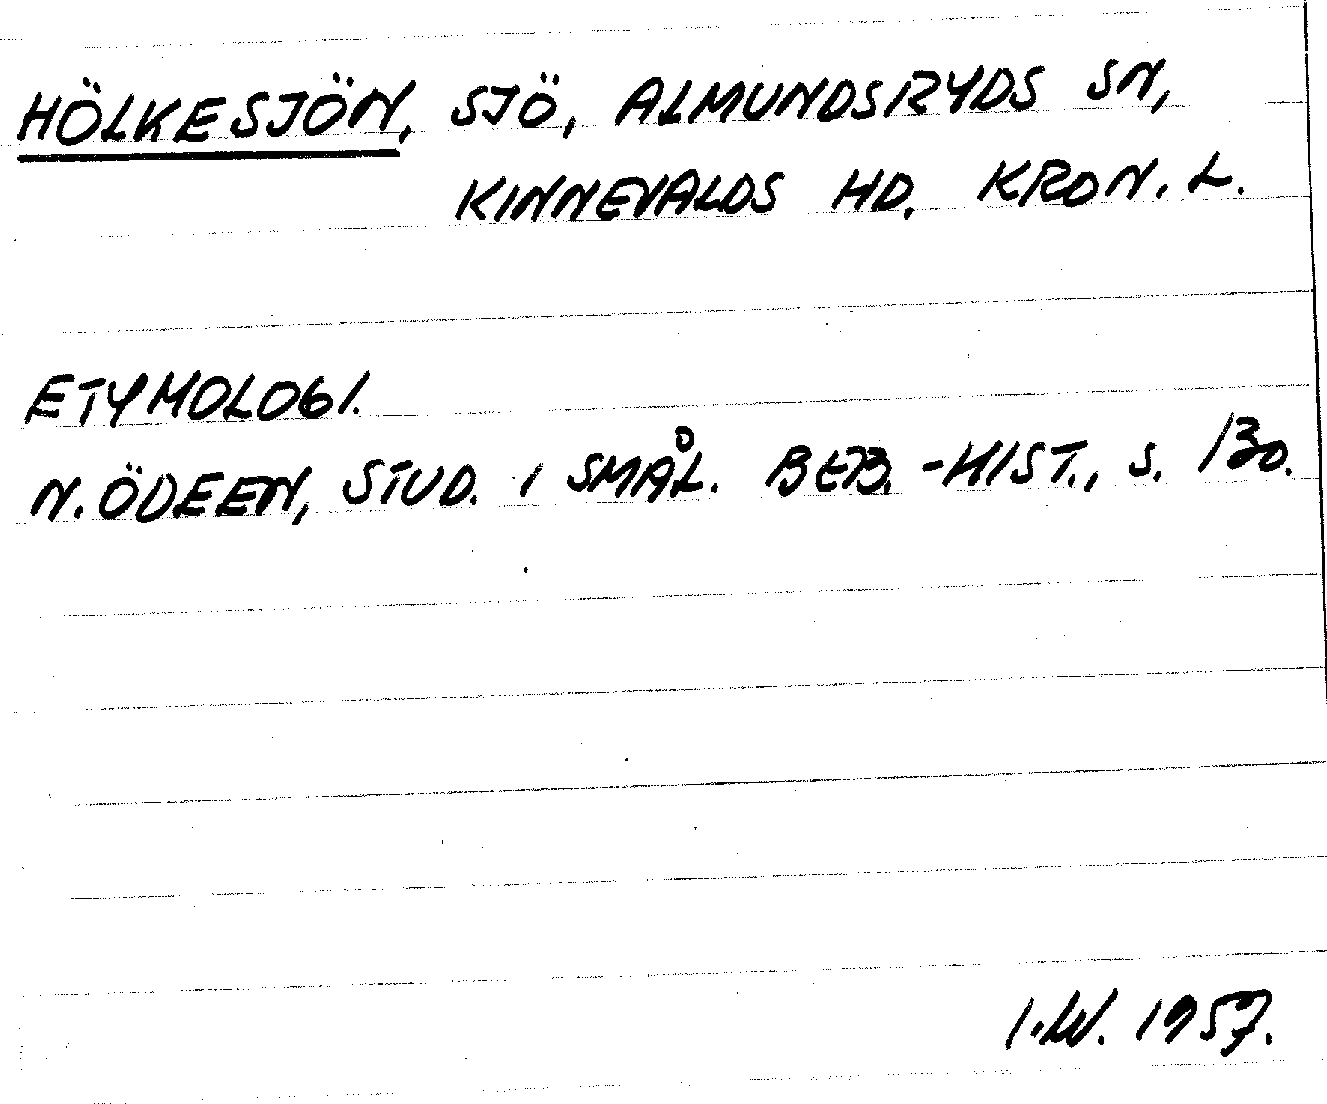 HÖLKESJÖN, SJÖ, ALMUNDSRYDS SN,
KINNEVALDS HD. KRON. L.
ETYMOLOGI.
N. ÖDEEN, STUD. I SMÅL. BEB.-HIST., S. 130.
I.W. 1957.